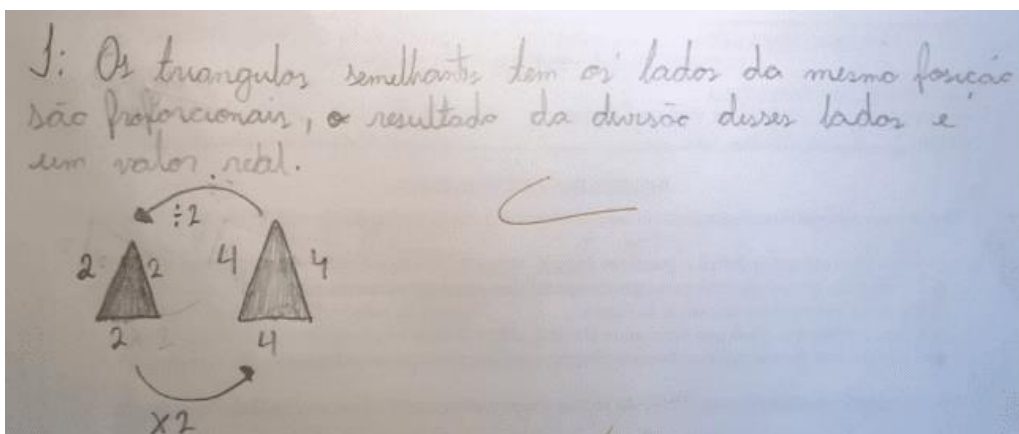 J: Os triangulos semelhants tem os lados da mesmo posição
são proporcionais, o resultado da divisão desses lados e
um valor real.
÷2
2 2 4 4
2 4
×2